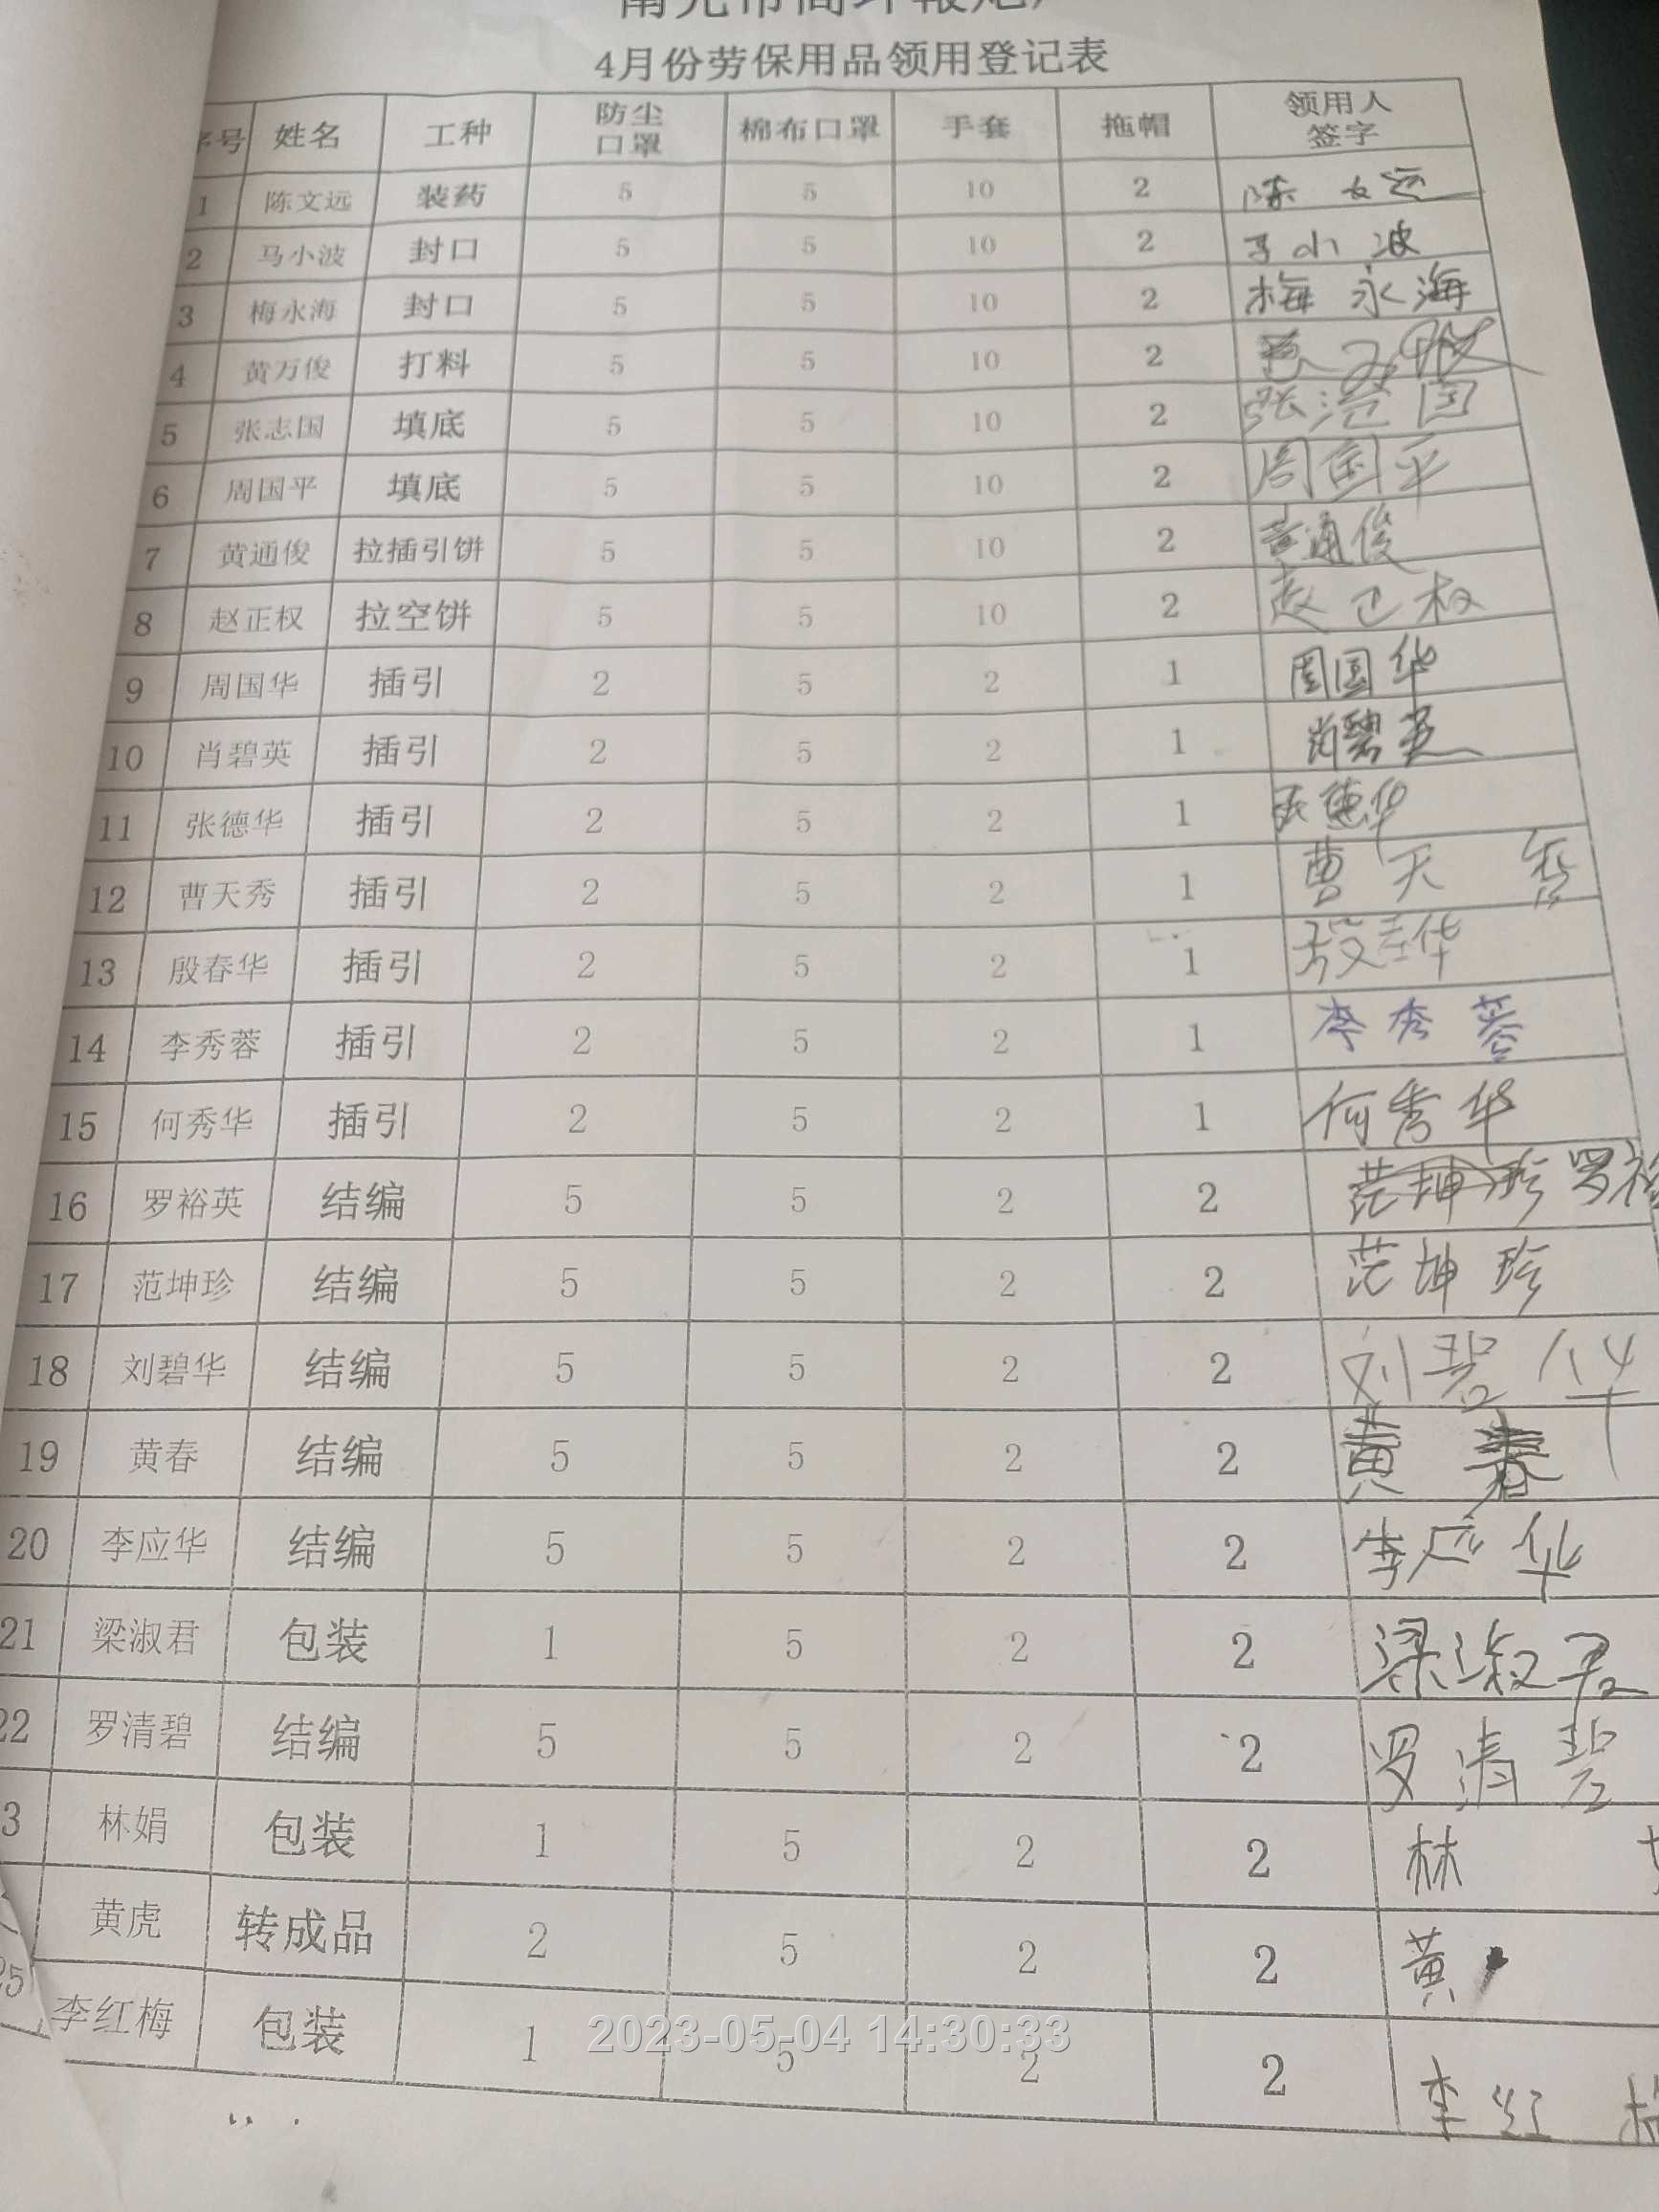 4月份劳保用品领用登记表
序号 姓名 工种 防尘口罩 棉布口罩 手套 拖帽 领用人签字
1 陈文远 装药 5 5 10 2 陈文远
2 马小波 封口 5 5 10 2 马小波
3 梅永海 封口 5 5 10 2 梅永海
4 黄万俊 打料 5 5 10 2
5 张志国 填底 5 5 10 2 张志国
6 周国平 填底 5 5 10 2 周国平
7 黄通俊 拉插引饼 5 5 10 2 黄通俊
8 赵正权 拉空饼 5 5 10 2 赵正权
9 周国华 插引 2 5 2 1 周国华
10 肖碧英 插引 2 5 2 1 肖碧英
11 张德华 插引 2 5 2 1 张德华
12 曹天秀 插引 2 5 2 1 曹天秀
13 殷春华 插引 2 5 2 1
14 李秀蓉 插引 2 5 2 1 李秀蓉
15 何秀华 插引 2 5 2 1 何秀华
16 罗裕英 结编 5 5 2 2 范坤珍 罗裕
17 范坤珍 结编 5 5 2 2 范坤珍
18 刘碧华 结编 5 5 2 2 刘碧华
19 黄春 结编 5 5 2 2 黄春
20 李应华 结编 5 5 2 2 李应华
21 梁淑君 包装 1 5 2 2 梁淑君
22 罗清碧 结编 5 5 2 2 罗清碧
3 林娟 包装 1 5 2 2 林
黄虎 转成品 2 5 2 2 黄
25 李红梅 包装 1 5 2 2 李红梅
2023-05-04 14:30:33